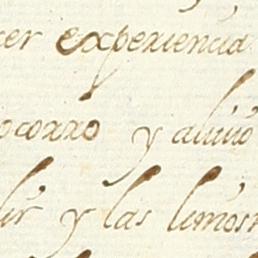 cer experiencia
ocorro y alivio
lir y las limosn